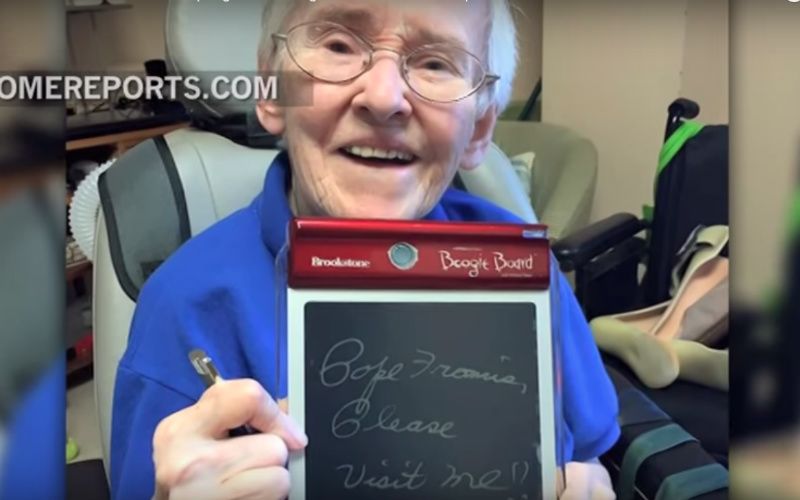 OMEREPORTS.COM
Brookstone Boogie Board
Pope Francis,
Please
Visit me!!